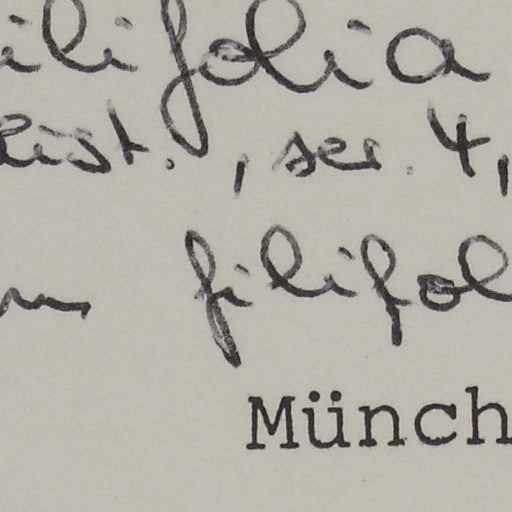 ilifolia
Hist., ser. 4,
filifol
Münch